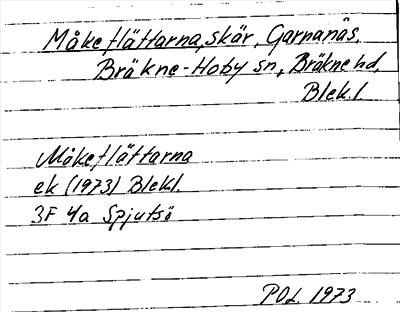 Måkeflättarna, skär, Garnanäs,
Bräkne-Hoby sn, Bräkne hd,
Blek.l
Måkeflättarna
ek (1973) Blek.l.
3F 4a Spjutsö
POL 1973